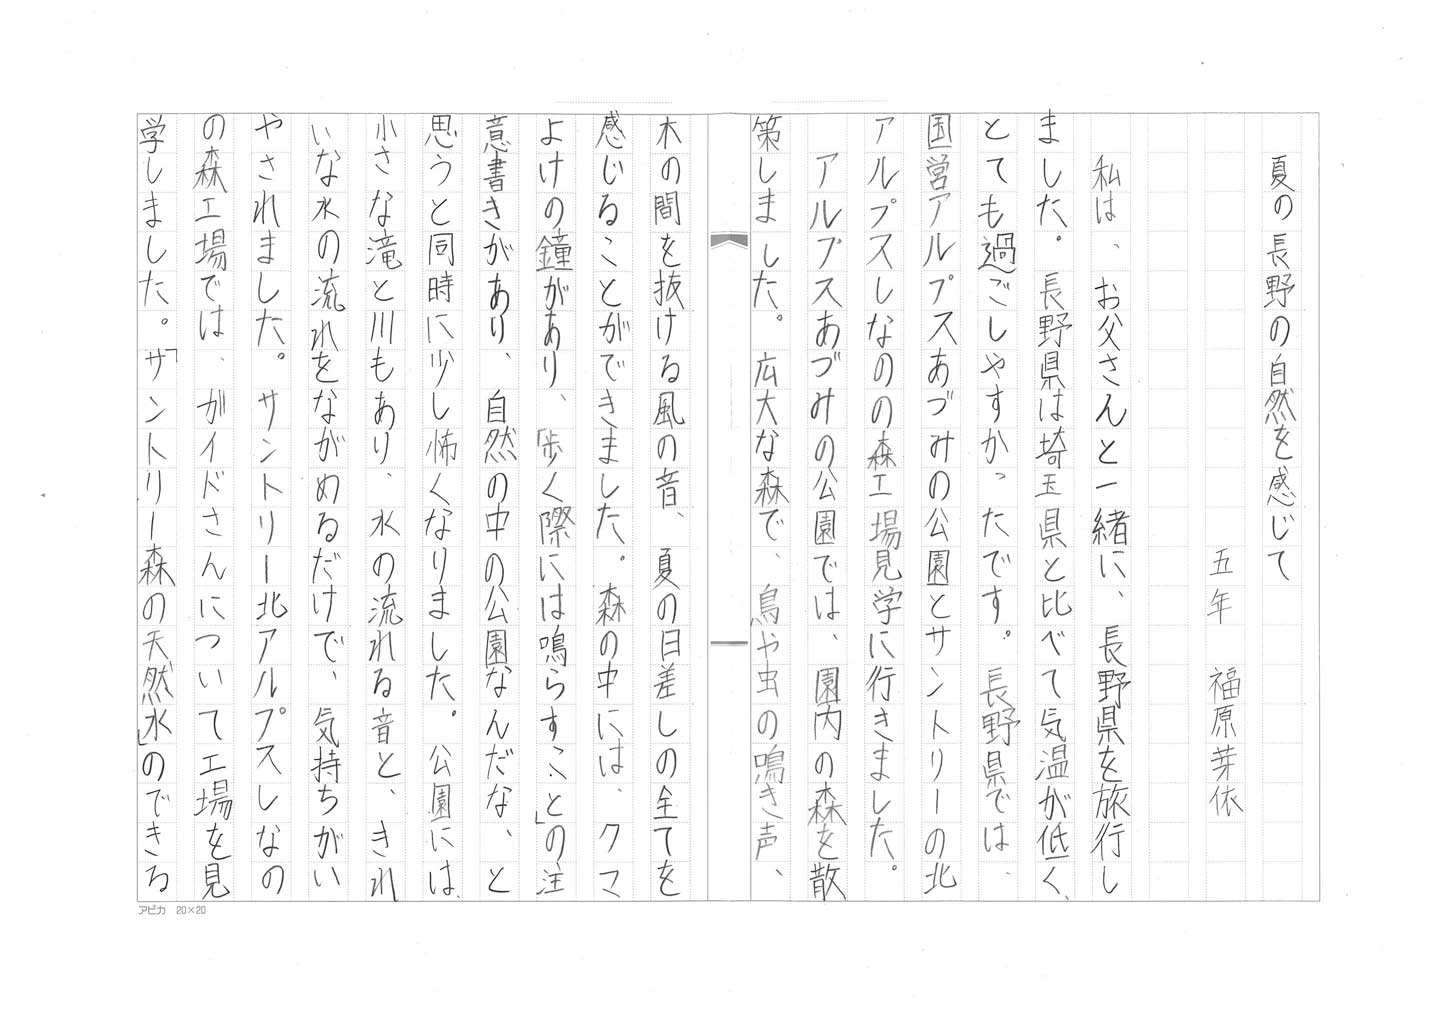 夏の長野の自然を感じて
五年　福原芽依
私は、お父さんと一緒に、長野県を旅行し
ました。長野県は埼玉県と比べて気温が低く、
とても過ごしやすかったです。長野県では、
国営アルプスあづみの公園とサントリーの北
アルプスしなのの森工場見学に行きました。
アルプスあづみの公園では、園内の森を散
策しました。広大な森で、鳥や虫の鳴き声、
木の間を抜ける風の音、夏の日差しの全てを
感じることができました。森の中には、クマ
よけの鐘があり、「歩く際には鳴らすこと」の注
意書きがあり、自然の中の公園なんだな、と
思うと同時に少し怖くなりました。公園には、
小さな滝と川もあり、水の流れる音と、きれ
いな水の流れをながめるだけで、気持ちがい
やされました。サントリー北アルプスしなの
の森工場では、ガイドさんについて工場を見
学しました。「サントリー森の天然水」のできる
アピカ　20×20